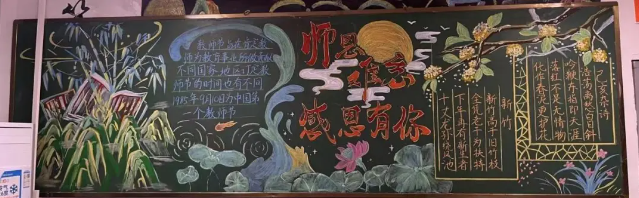 教师节旨在肯定教
师为教育事业所做贡献
不同国家、地区的教
师节的时间也有不同
1985年9月10日为中国第
一个教师节
师恩难忘
感恩有你
己亥杂诗
浩荡离愁白日斜
吟鞭东指即天涯
落红不是无情物
化作春泥更护花
新竹
新竹高于旧竹枝
全凭老干为扶持
下年再有新生者
十丈龙孙绕凤池